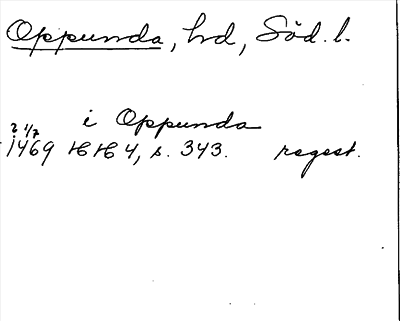 Oppunda, hd, Söd. l.
i Oppunda
2 1/7
1469 HH 4, s. 343. regest.